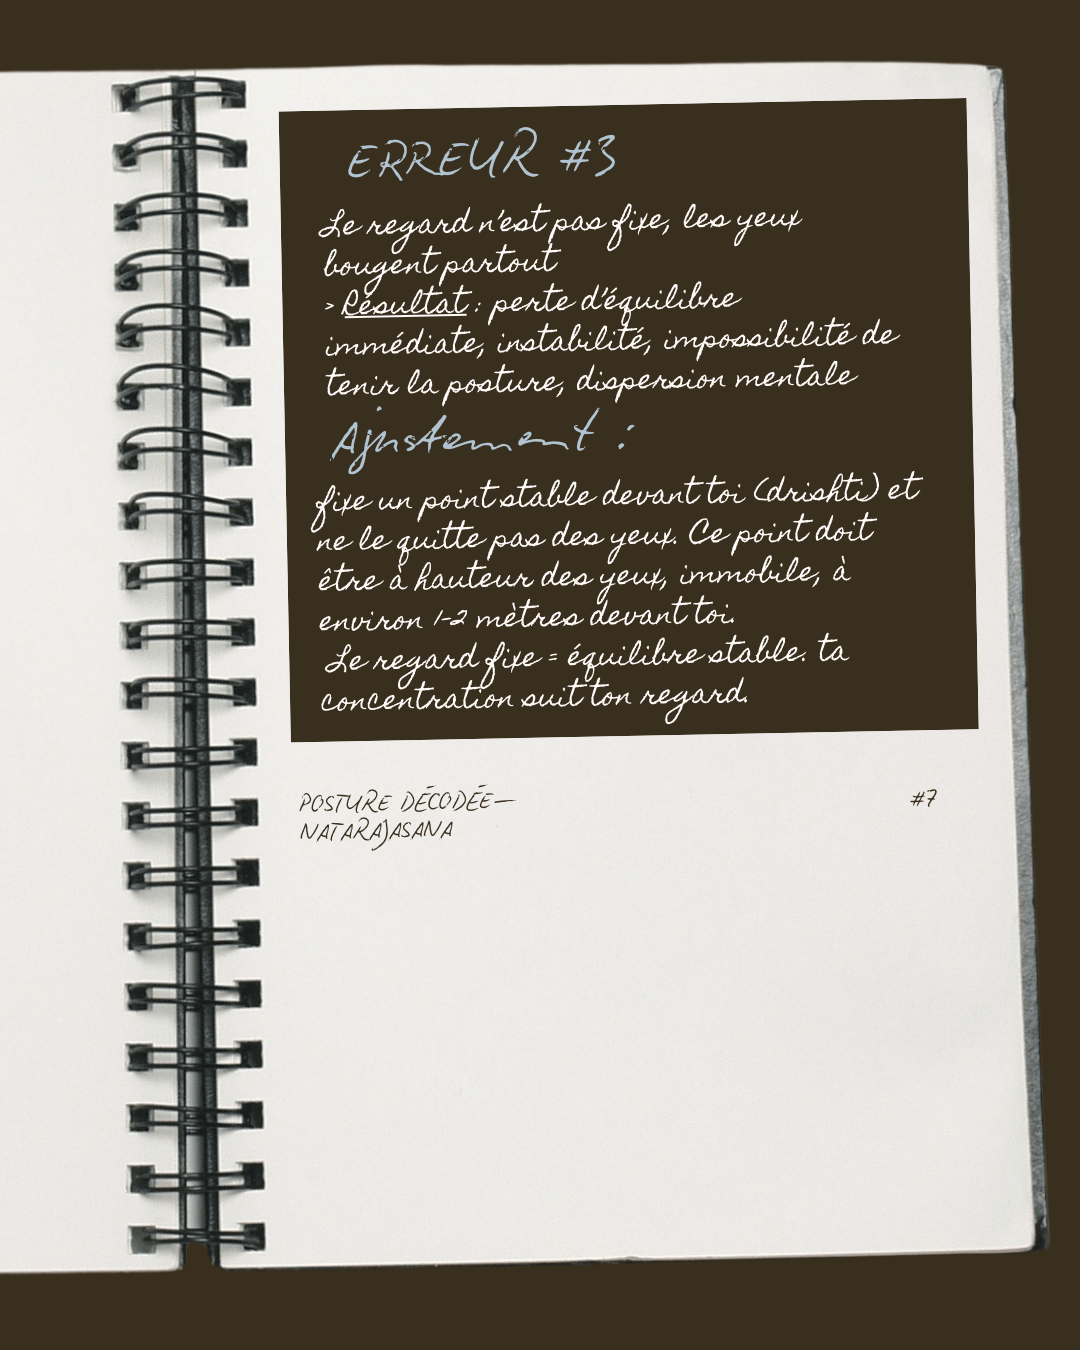 ERREUR #3
Le regard n'est pas fixe, les yeux
bougent partout
> Résultat : perte d'équilibre
immédiate, instabilité, impossibilité de
tenir la posture, dispersion mentale
Ajustement :
fixe un point stable devant toi (drishti) et
ne le quitte pas des yeux. Ce point doit
être à hauteur des yeux, immobile, à
environ 1-2 mètres devant toi.
Le regard fixe = équilibre stable. ta
concentration suit ton regard.
POSTURE DÉCODÉE—
NATARAJASANA
#7